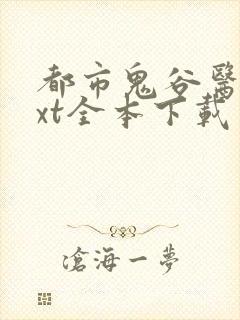 都市鬼谷醫
xt全本下載
滄海一夢